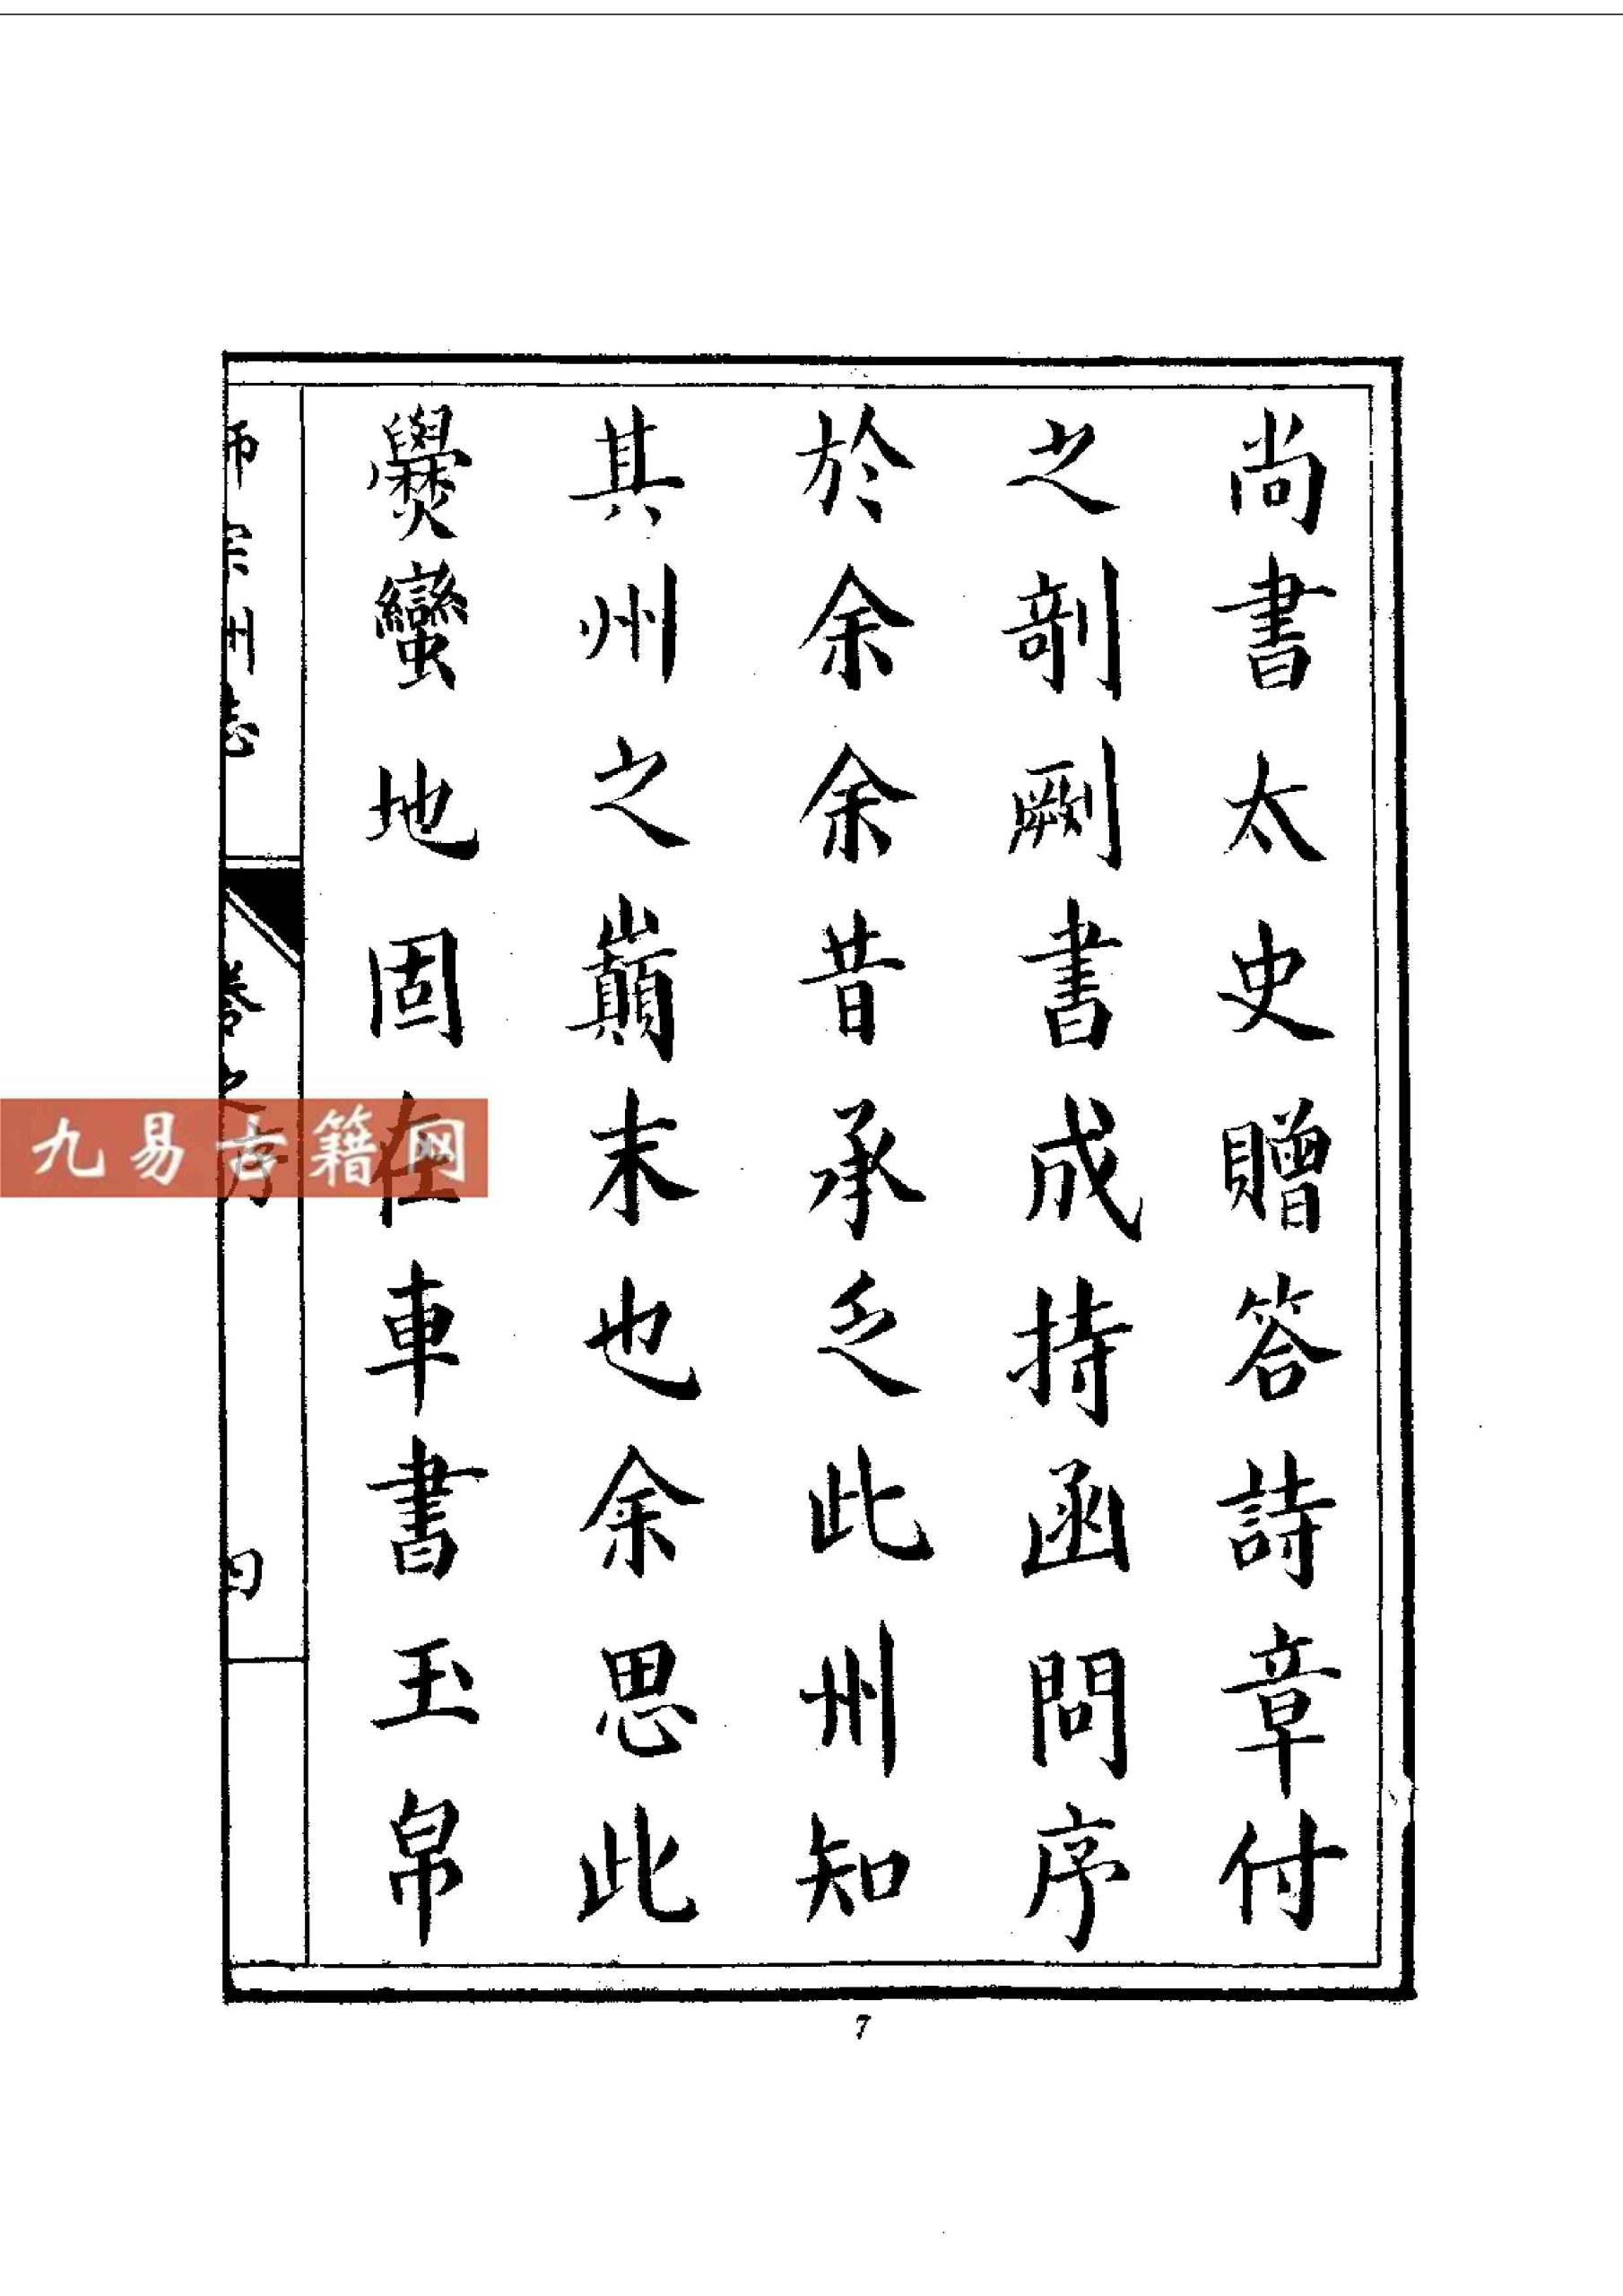 尚書太史贈答詩章付
之剞劂書成持函問序
於余余昔承乏此州知
其州之巔末也余思此
爨蠻地固在車書玉帛
師宗州志
卷之序
四
九易古籍网
7